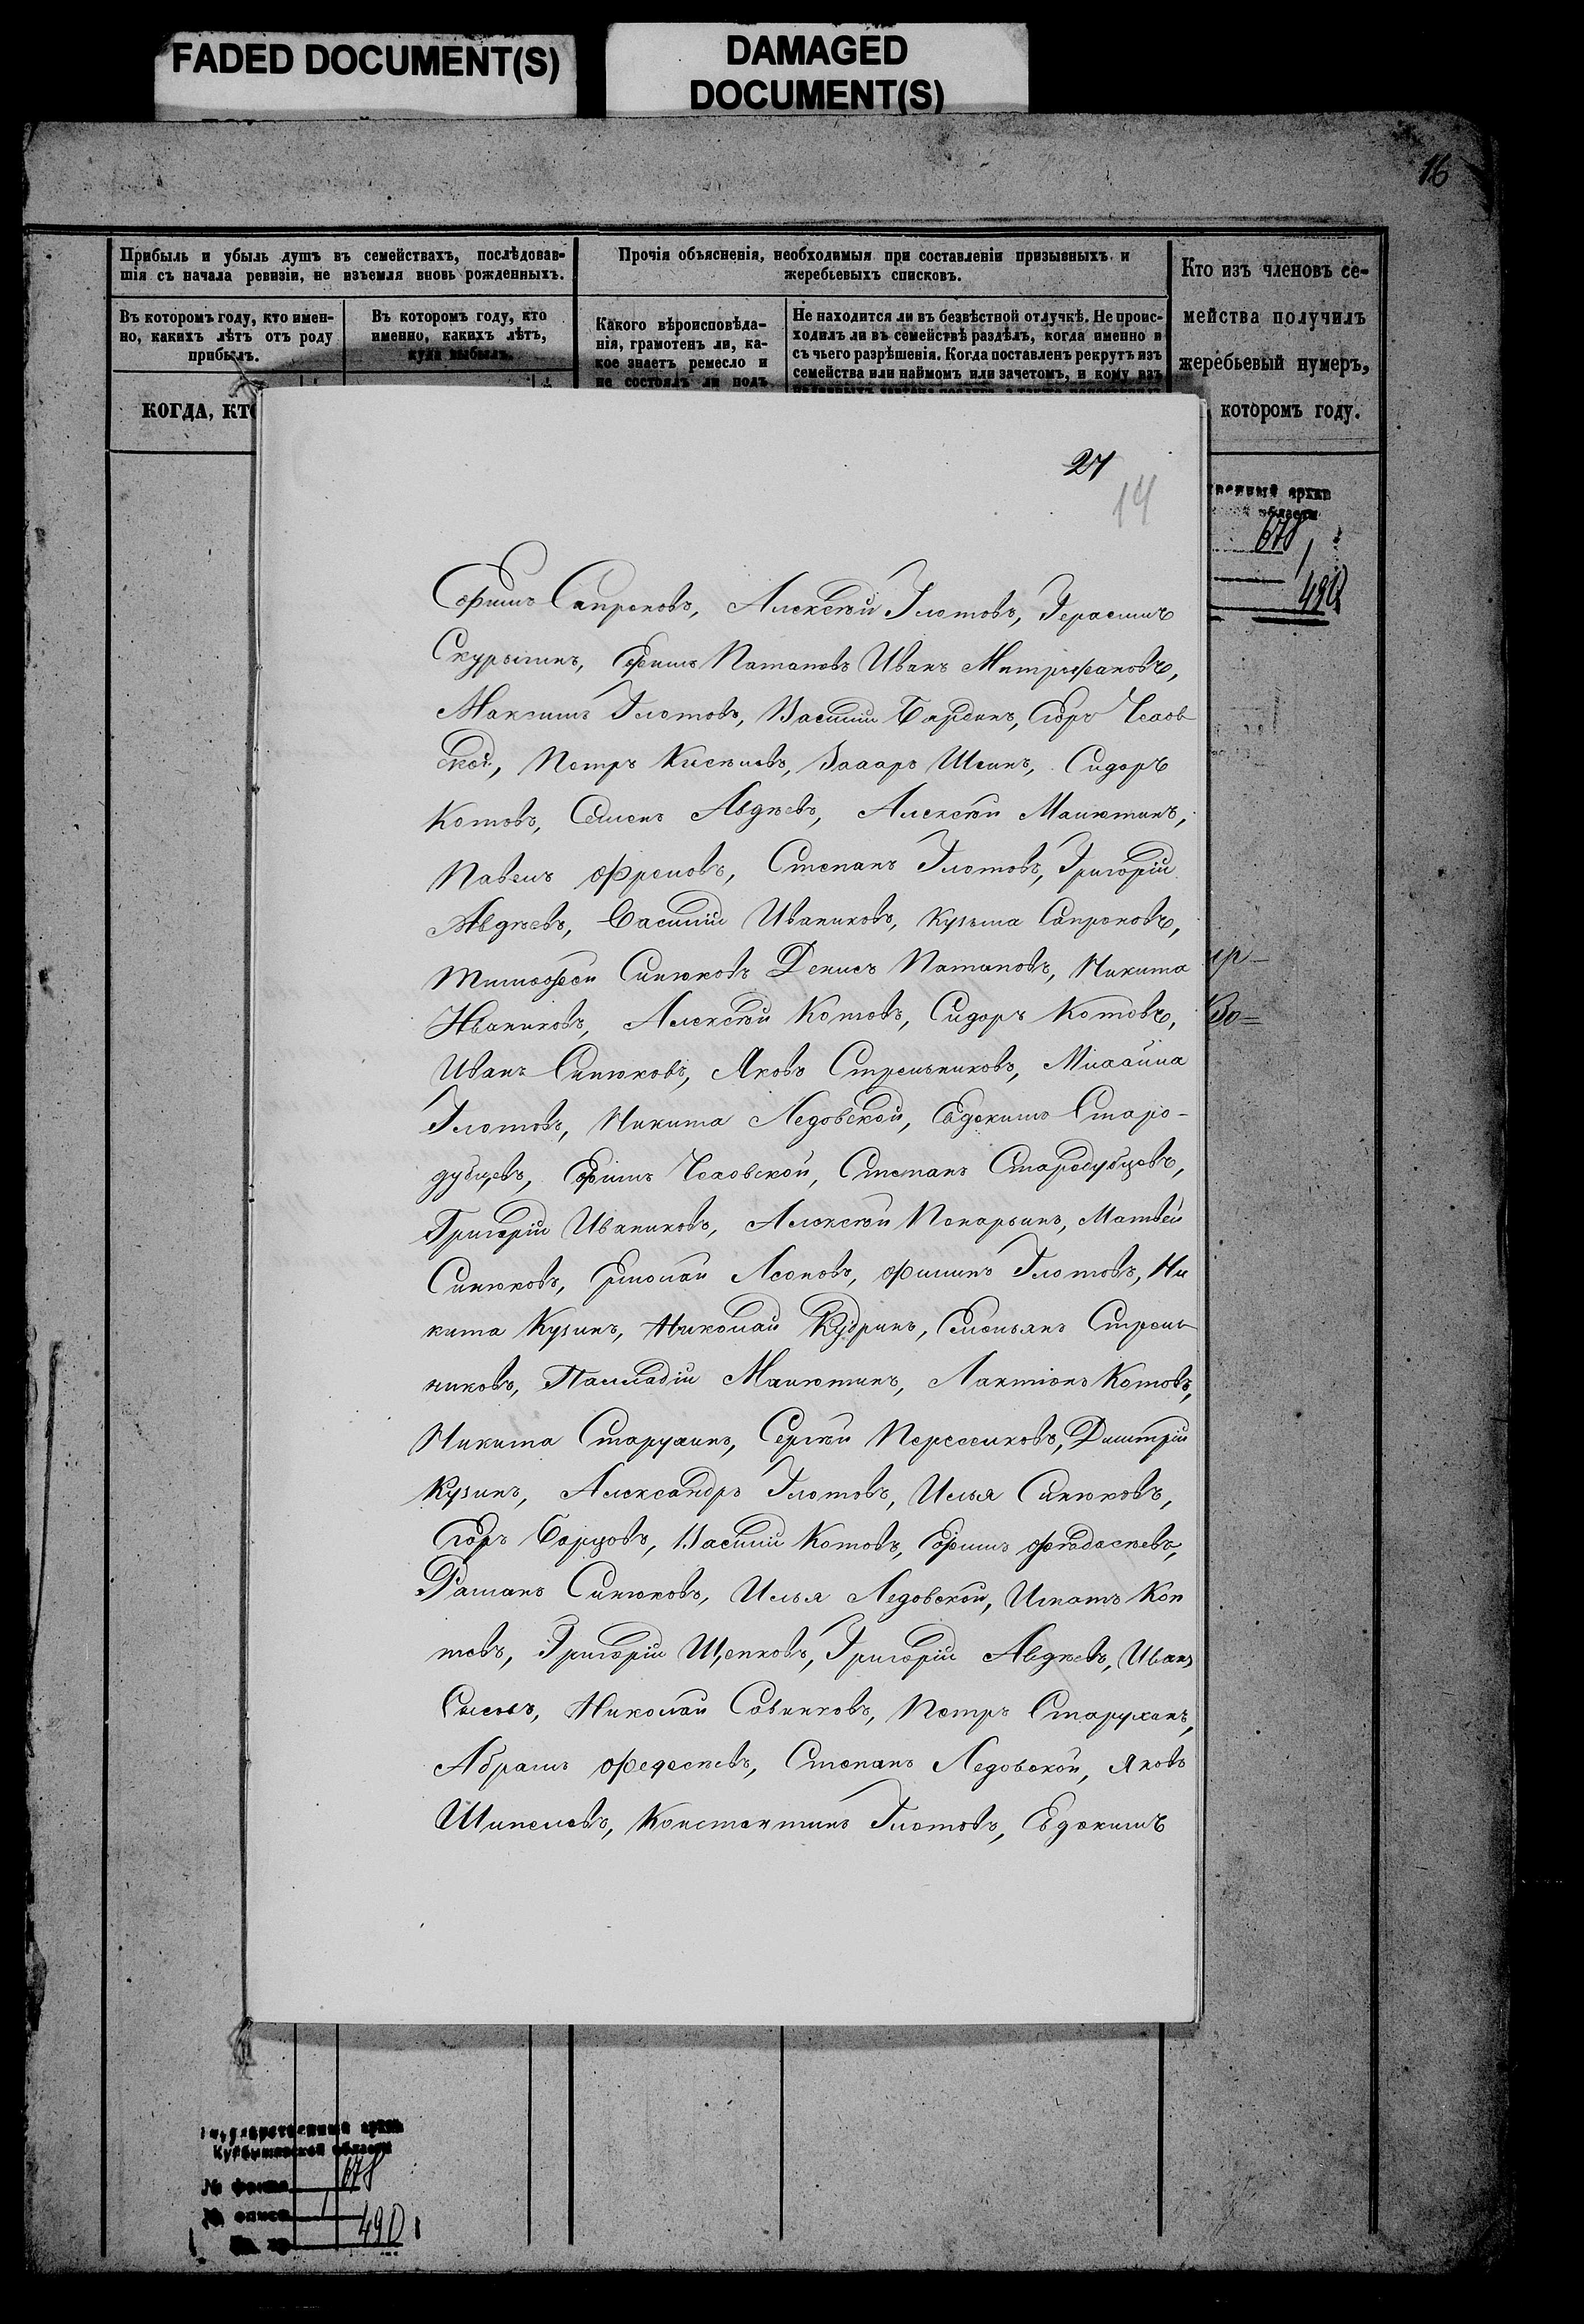 FADED DOCUMENT(S)
DAMAGED
DOCUMENT(S)
16
Прибыль и убыль душъ въ семействахъ, послѣдовав-
шія съ начала ревизіи, не изъемля вновь рожденныхъ.
Въ которомъ году, кто имен-
но, какихъ лѣтъ отъ роду
прибылъ.
Въ которомъ году, кто
именно, какихъ лѣтъ,
куда выбылъ.
КОГДА, КТО
Прочія объясненія, необходимыя при составленіи призывныхъ и
жеребьевыхъ списковъ.
Какого вѣроисповѣда-
нія, грамотенъ ли, ка-
кое знаетъ ремесло и
не состоялъ ли подъ
Не находится ли въ безвѣстной отлучкѣ. Не проис-
ходилъ ли въ семействѣ раздѣлъ, когда именно и
съ чьего разрѣшенія. Когда поставленъ рекрутъ изъ
семейства или наймомъ или зачетомъ, и кому изъ
Кто изъ членовъ се-
мейства получилъ
жеребьевый нумеръ,
которомъ году.
27
14
Ефимъ Сапроновъ, Алексѣй Глотовъ, Герасимъ
Скурыгинъ, Ефимъ Патаповъ Иванъ Митрофановъ,
Максимъ Глотовъ, Василій Бардинъ, Егоръ Чехов
ской, Петръ Киселевъ, Захаръ Шеинъ, Сидоръ
Котовъ, Семенъ Авдѣевъ, Алексѣй Малютинъ,
Павелъ Фроловъ, Степанъ Глотовъ, Григорій
Авдѣевъ, Василій Иваниковъ, Кузьма Сапроновъ,
Тимофей Синюковъ Денисъ Патаповъ, Никита
Иваниковъ, Алексѣй Котовъ, Сидоръ Котовъ,
Иванъ Синюковъ, Яковъ Стрельниковъ, Михайла
Глотовъ, Никита Ледовской, Евдокимъ Старо-
дубцевъ, Ефимъ Чеховской, Степанъ Стародубцевъ,
Григорій Иваниковъ, Алексѣй Понарьинъ, Матвѣй
Синюковъ, Ермолай Леоновъ, Филипъ Глотовъ, Ни
кита Кузинъ, Николай Кудринъ, Емельянъ Стрель
никовъ, Палладій Малютинъ, Лактіонъ Котовъ,
Никита Старухинъ, Сергѣй Переселковъ, Дмитрій
Кузинъ, Александръ Глотовъ, Илья Синюковъ,
Егоръ Борцовъ, Василій Котовъ, Ефимъ
Раманъ Синюковъ, Илья Ледовской, Игнатъ Коп
тевъ, Григорій Щепковъ, Григорій Авдѣевъ, Иванъ
Сысоевъ, Николай Савинковъ, Петръ Старухинъ,
Абрамъ Федосѣевъ, Степанъ Ледовской, Яковъ
Шипелевъ, Константинъ Глотовъ, Евдокимъ
архив
области
678
1
490
Государственный архив
Куйбышевской области
№ фонда 678
№ описи 1
490